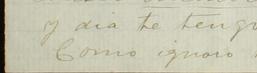 y dia te teng
Como ignoro